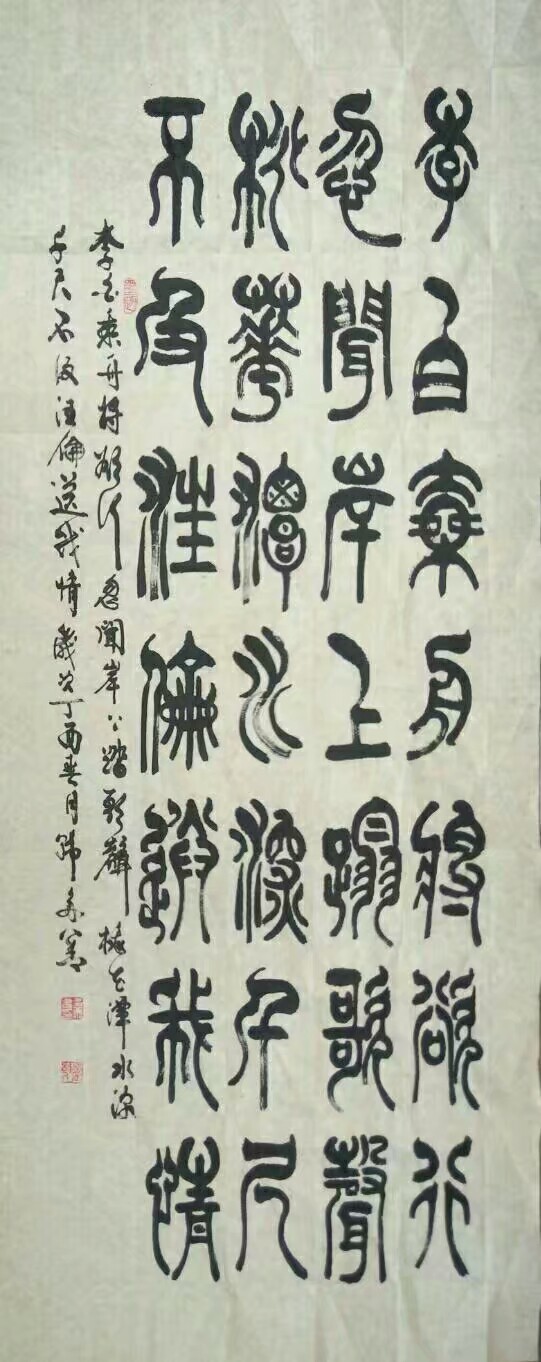 李白乘舟將欲行
忽聞岸上蹋歌聲
桃華潭水深千尺
不及汪倫送我情
李白乘舟將欲行忽聞岸上踏歌聲桃花潭水深
千尺不及汪倫送我情歲次丁酉春月